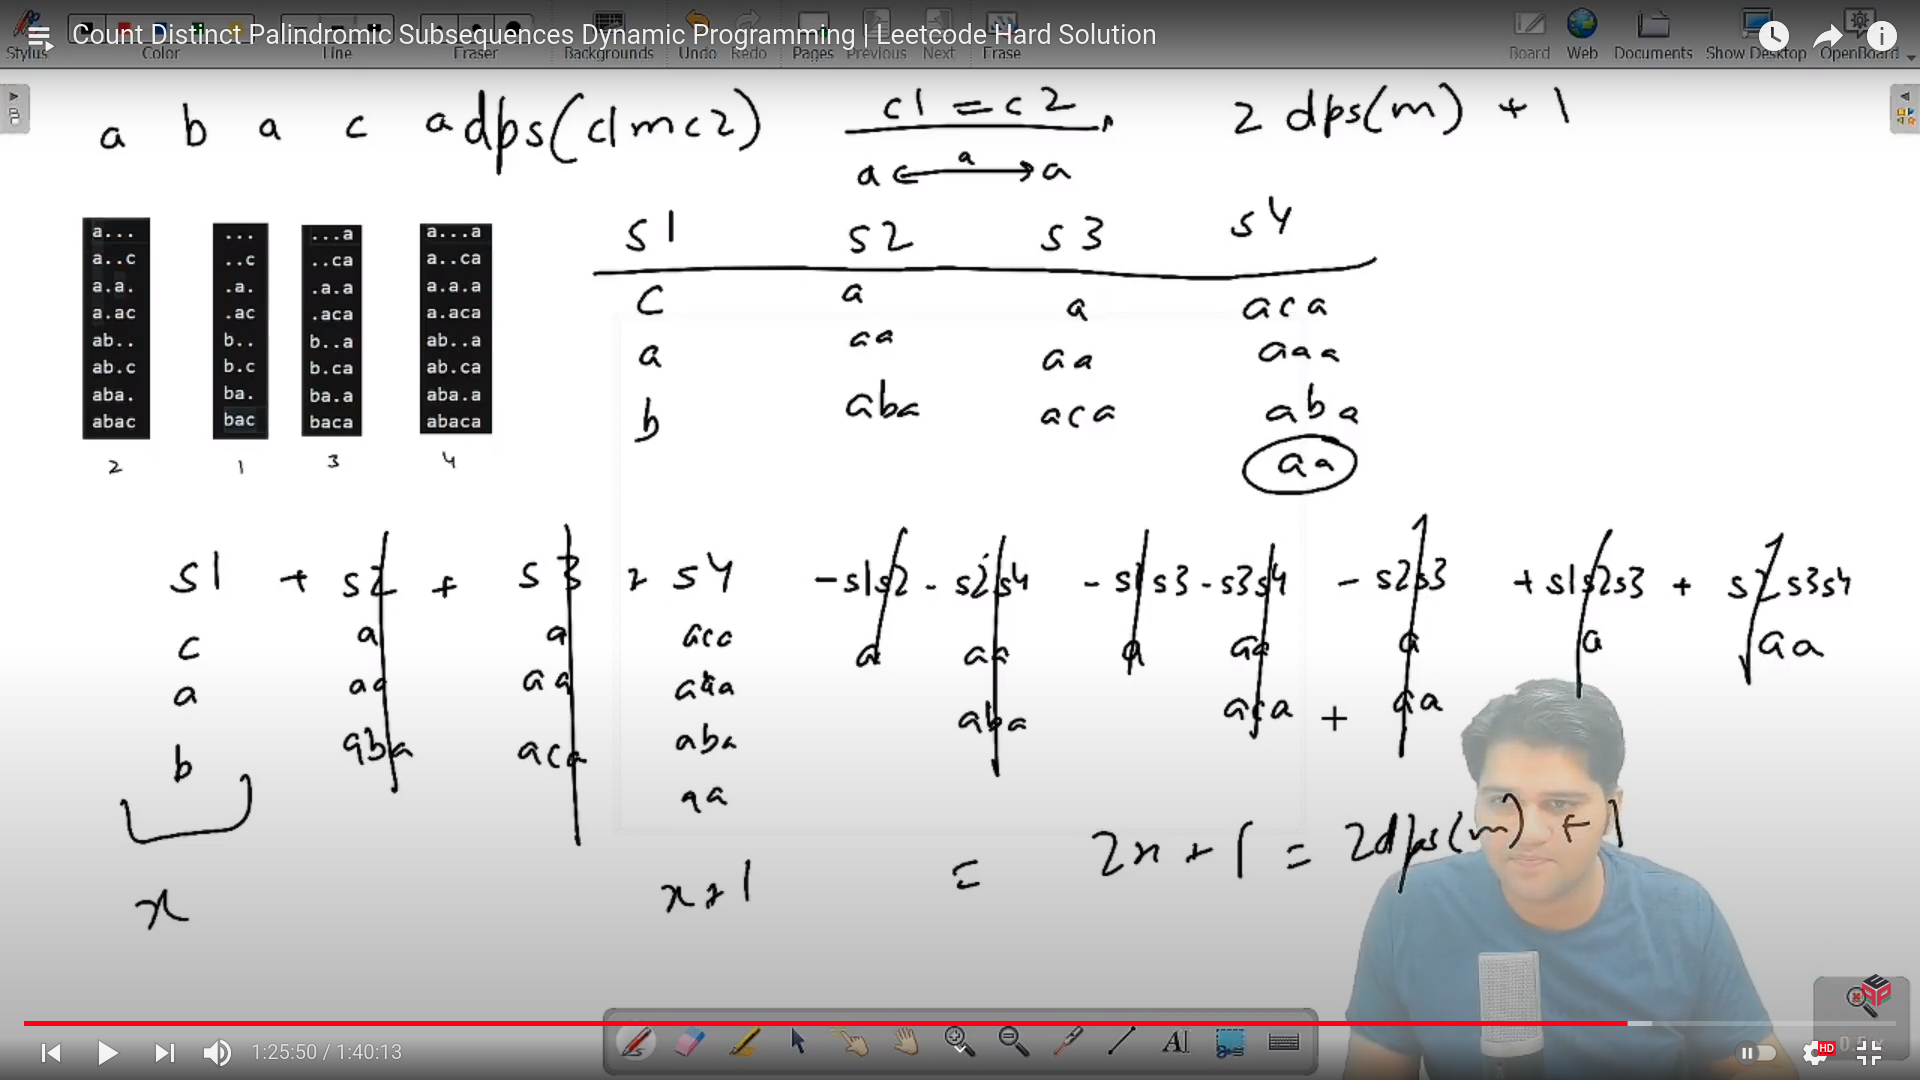 Count Distinct Palindromic Subsequences Dynamic Programming | Leetcode Hard Solution
Stylus Color Line Eraser Backgrounds Undo Redo Pages Previous Next Erase Board Web Documents Show Desktop OpenBoard
a b a c a dps(c1mc2) c1 = c2 2 dps(m) + 1
a a a
s1 s2 s3 s4
c a a aca
a aa aa aaa
b aba aca aba
aa
a... ... ...a a...a
a..c ..c ..ca a..ca
a.a. .a. .a.a a.a.a
a.ac .ac .aca a.aca
ab.. b.. b..a ab..a
ab.c b.c b.ca ab.ca
aba. ba. ba.a aba.a
abac bac baca abaca
2 1 3 4
s1 + s2 + s3 + s4 - s1s2 - s2s4 - s1s3 - s3s4 - s2s3 + s1s2s3 + s2s3s4
c a a aca a aa a aa a a aa
a aa aa aaa aba aca + aa
b aba aca aba
aa
x x+1 = 2x + 1 = 2dps(m) + 1
1:25:50 / 1:40:13
HD